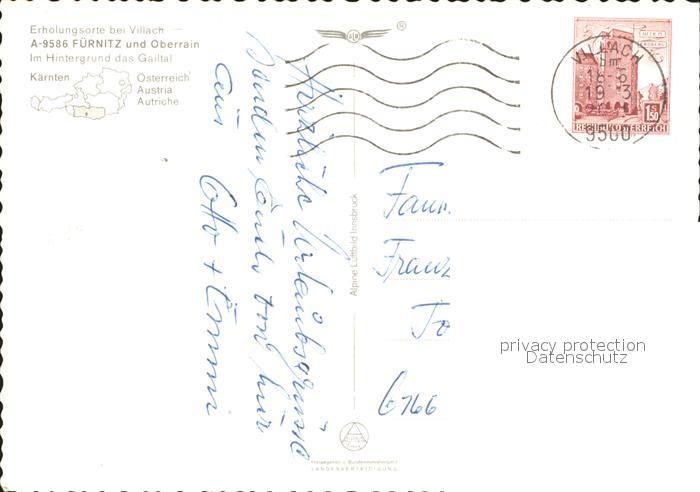 Erholungsorte bei Villach —
A-9586 FÜRNITZ und Oberrain
Im Hintergrund das Gailtal
Kärnten
Österreich
Austria
Autriche
Herzliche Urlaubsgrüße
senden Euch von hier
aus
Otto + Emmi
Alpine Luftbild Innsbruck
VILLACH
9500
1.50
REPUBLIK ÖSTERREICH
Fam.
Franz
Jo
6166
privacy protection
Datenschutz
ALPINE
LANDESVERTEIDIGUNG